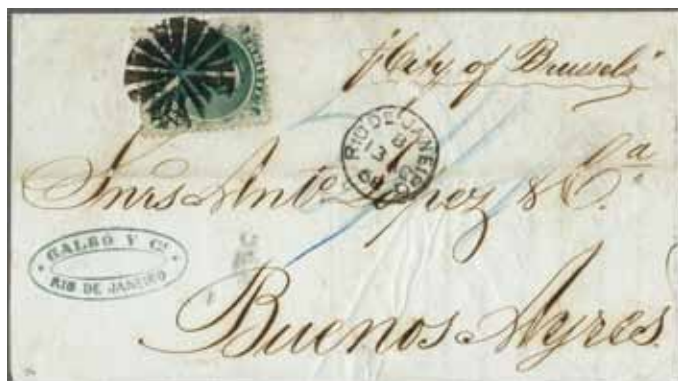 "City of Brussels"
RIO DE JANEIRO
8
13
68
Snrs Anto. Lopez & Ca.
GALBÓ Y Ca.
RIO DE JANEIRO
Buenos Ayres